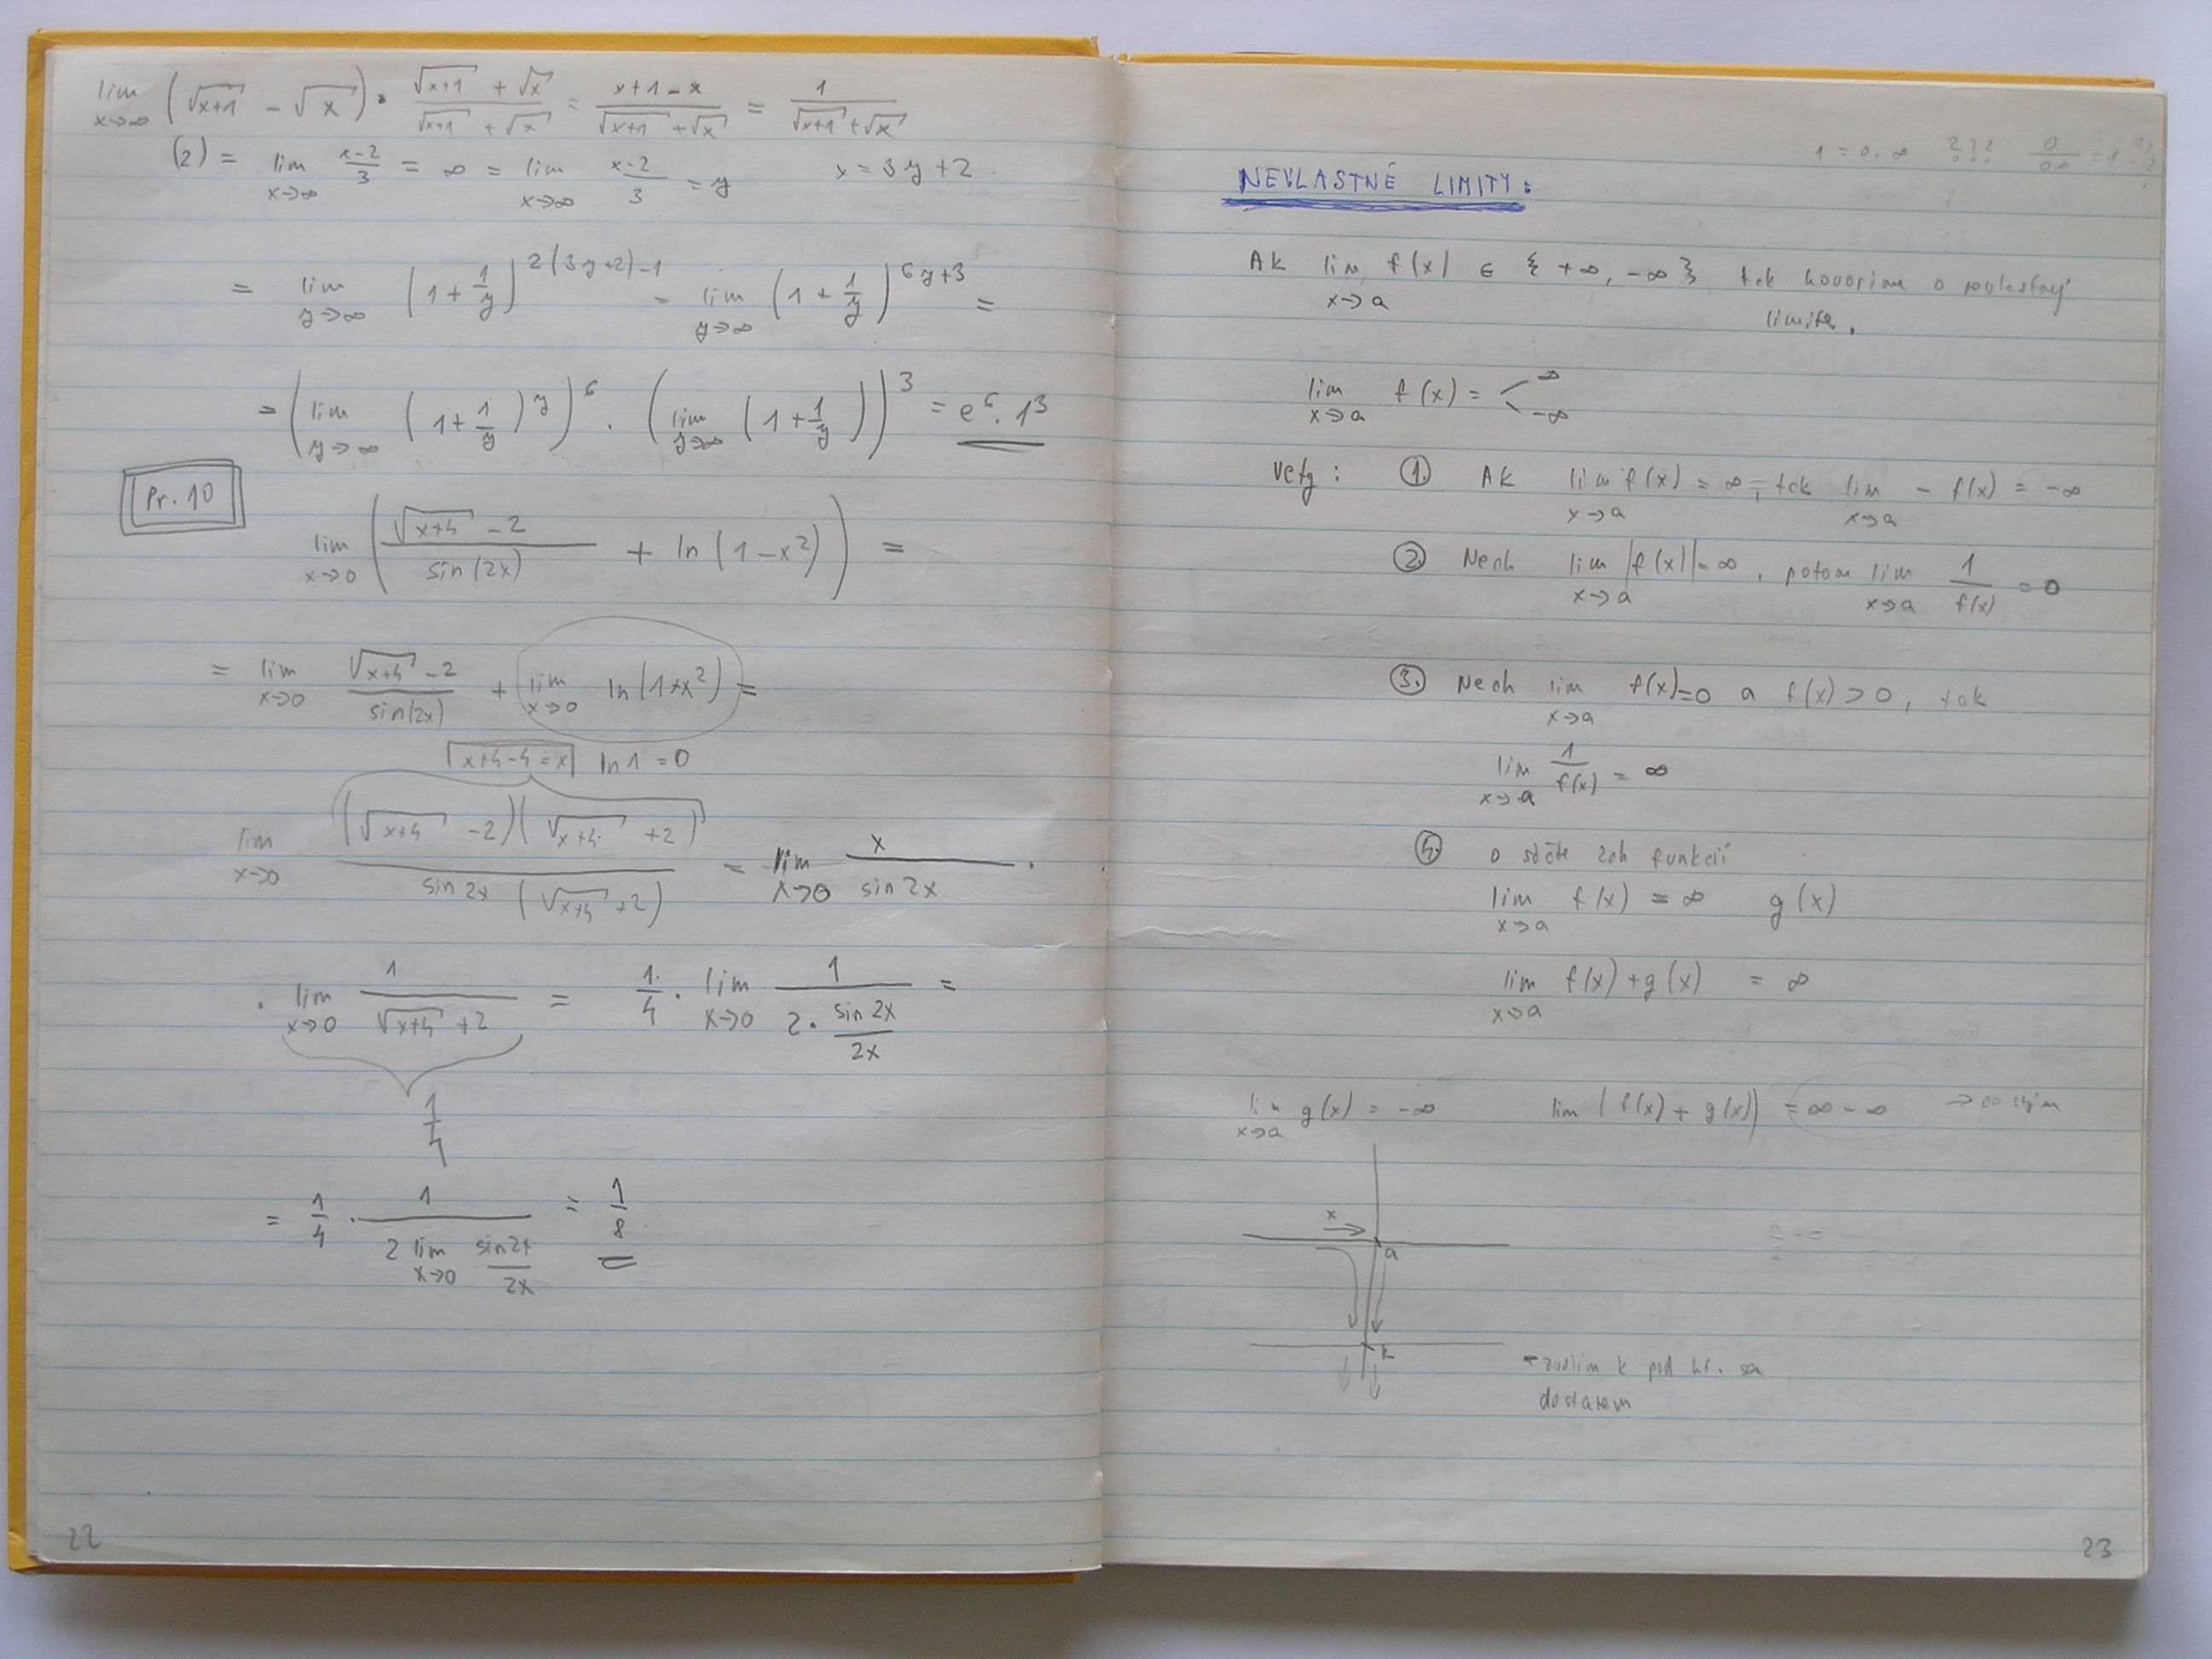 lim x→∞ (√(x+1) - √x) · (√(x+1) + √x)/(√(x+1) + √x) = (x+1-x)/(√(x+1) + √x) = 1/(√(x+1) + √x)
(2) = lim x→∞ (x-2)/3 = ∞ = lim x→∞ (x-2)/3 = y x = 3y+2
= lim y→∞ (1+1/y)^(2(3y+2)-1) = lim y→∞ (1+1/y)^(6y+3) =
= (lim y→∞ (1+1/y)^y)^6 · (lim y→∞ (1+1/y))^3 = e^6 · 1^3
Pr. 10
lim x→0 ((√(x+4) - 2)/sin(2x) + ln(1-x²)) =
= lim x→0 (√(x+4) - 2)/sin(2x) + lim x→0 ln(1+x²) =
x+4-4=x ln 1 = 0
lim x→0 (√(x+4) - 2)(√(x+4) + 2)/(sin 2x (√(x+4) + 2)) = lim x→0 x/sin 2x ·
· lim x→0 1/(√(x+4) + 2) = 1/4 · lim x→0 1/(2 · sin 2x/2x) =
1/4
= 1/4 · 1/(2 lim x→0 sin 2x/2x) = 1/8
22
1 = 0.∞ ??? 0/00 = 1
NEVLASTNÉ LIMITY:
Ak lim x→a f(x) ∈ {+∞, -∞} tak hovoríme o nevlastnej
limite.
lim x→a f(x) = < ∞ -∞
Vety: 1. Ak lim x→a f(x) = ∞, tak lim x→a - f(x) = -∞
2. Nech lim x→a |f(x)| = ∞, potom lim x→a 1/f(x) = 0
3. Nech lim x→a f(x) = 0 a f(x) > 0, tak
lim x→a 1/f(x) = ∞
4. o súčte funkcií
lim x→a f(x) = ∞ g(x)
lim x→a f(x)+g(x) = ∞
lim x→a g(x) = -∞ lim (f(x) + g(x)) = ∞ - ∞ →
x
a
k
- zvolím k pod sa
dostanem
23